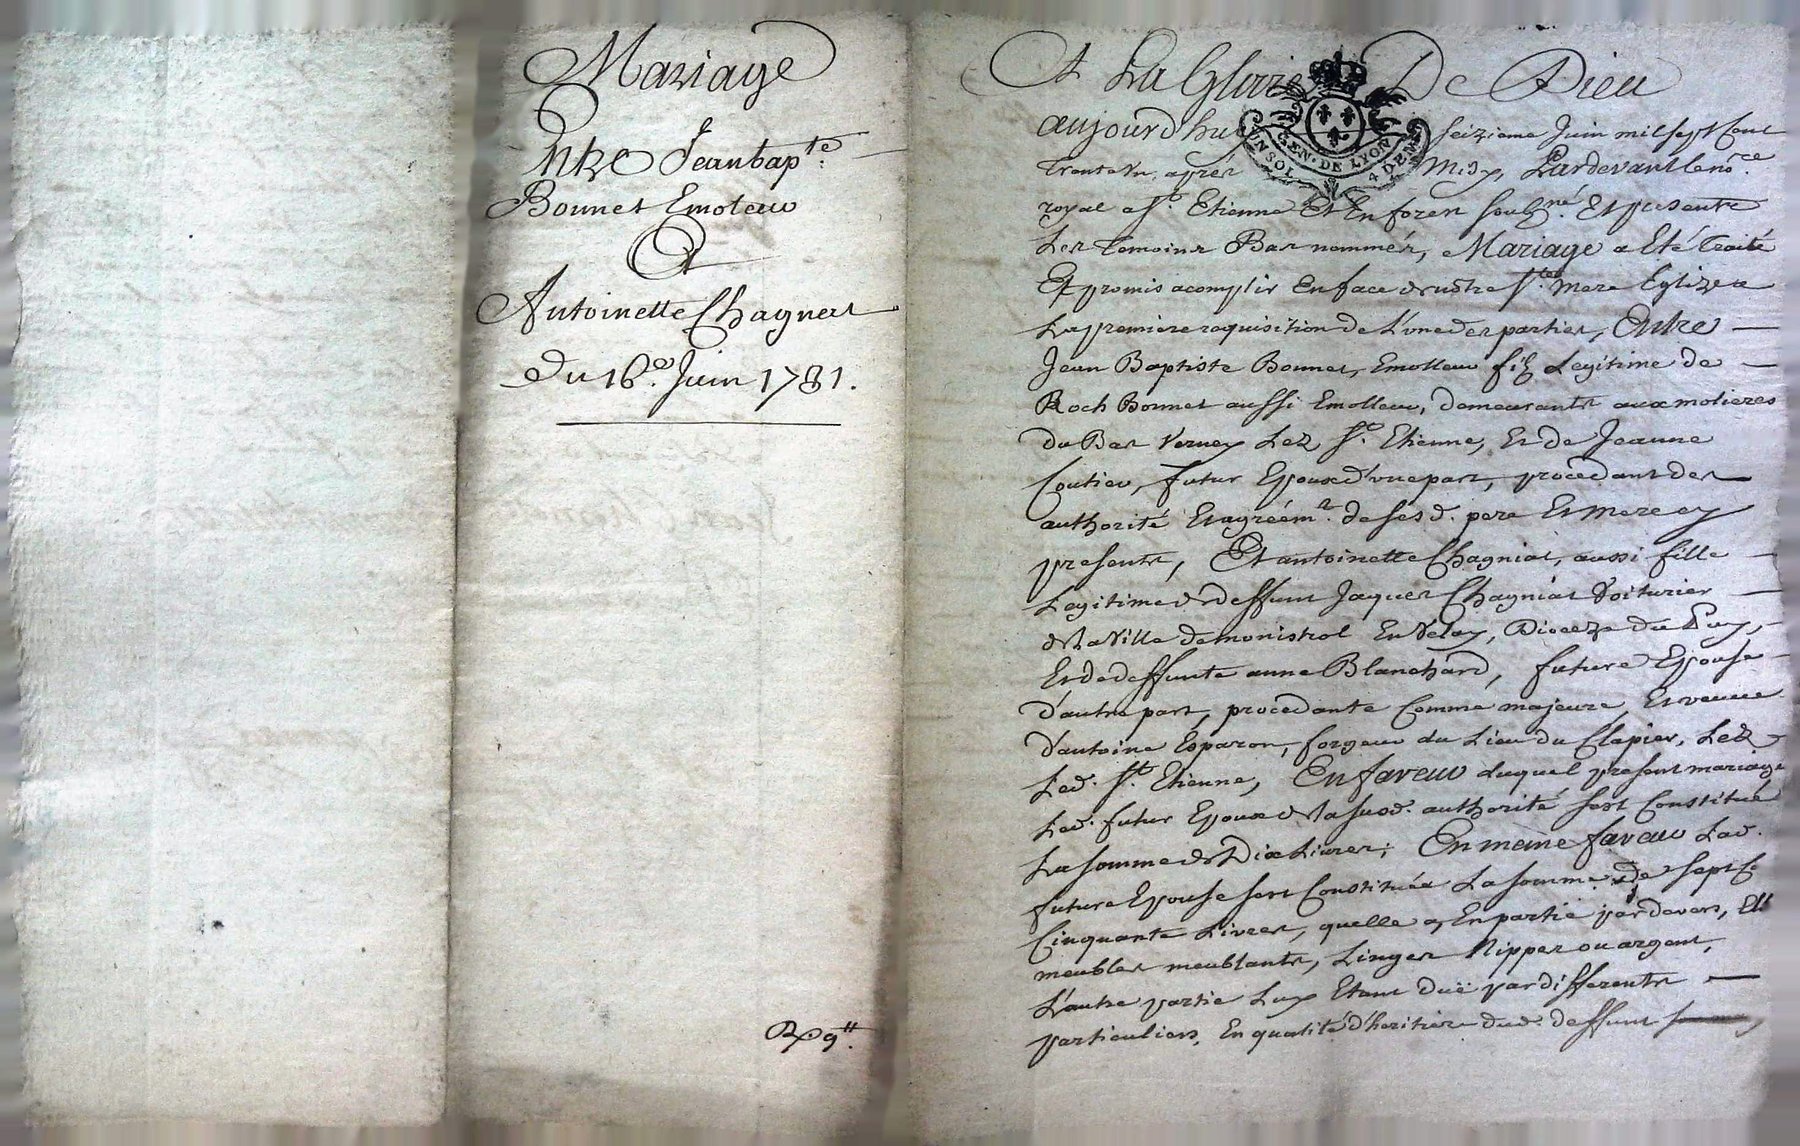 Mariage
Entre Jeanbap.te
Bonnet Emoleur
Et
Antoinette Chagneat
du 16.e Juin 1731.
Rx 9tt.
A La Gloire De Dieu
GEN. DE LYON
IN SOL. 4 DEN
aujourdhuy seizieme Juin mil sept Cent
Trente Un, aprés Midy, Pardevant le no.re
royal a St. Etienne Et En forez souss.né Et presents
Les Temoins Bas nommér, Mariage a Eté traité
Et promis acomplir En face de notre S.te mere Eglize a
La premiere requisition de L'une der parties, Entre
Jean Baptiste Bonnet, Emolleur fils Legitime de
Roch Bonnet aussi Emolleur, demeurants aux molieres
du Bas Vernay Lez St. Etienne, Et de Jeanne
Coutieu, futur Epoux d'une part, procedant des
authorité Et agréem.t de ses d. pere Et mere cy
presents, Et antoinette Chagniat, aussi fille
Legitime de deffunt Jaques Chagniat Voiturier
de la Ville de monistrol En Velay, Dioceze du Puy,
Et de deffunte anne Blanchard, future Epouse
d'autre part, procedante Comme majeure, Et veuve
d'antoine Esparon, forgeur du Lieu du Clapier, Lez
Led. St. Etienne, En faveur duquel present mariage
Led. futur Epoux de la susd. authorité s'est Constitué
La somme de Dix Livres; En meme faveur Lad.
future Epouse s'est Constituée La somme de sept C.
Cinquante Livres, quelle a, En partie pardevers, Ell
meubles meublants, Linges Nippes ou argent,
L'autre partie Luy Etant duë par differents
particuliers, En qualité d'heritiere dud. deffunt